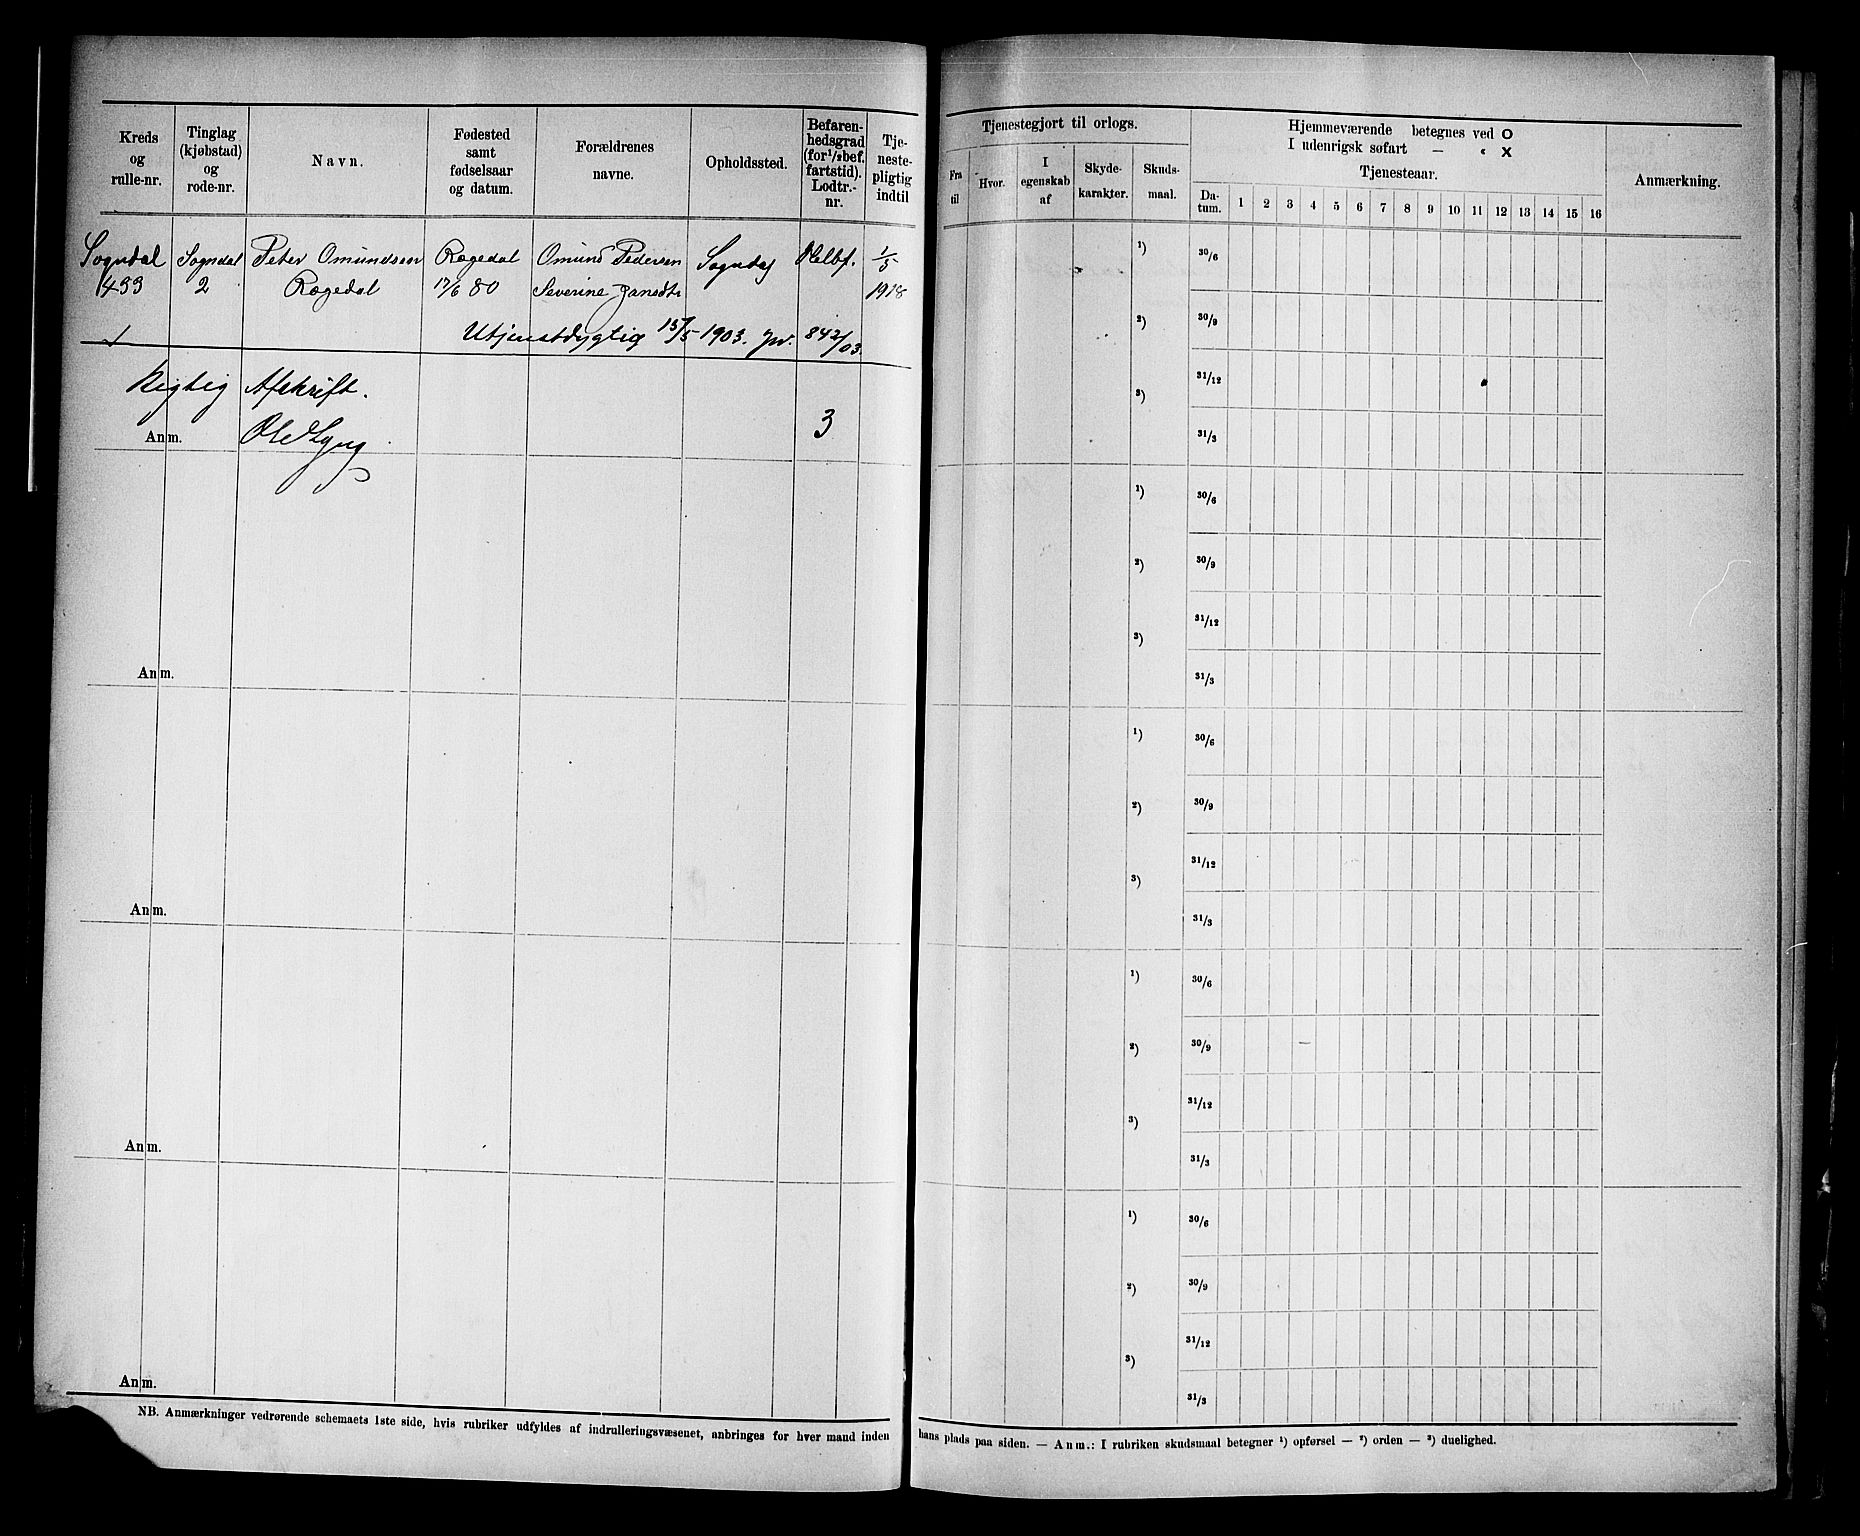 Kreds og rulle-nr.
Tinglag (kjøbstad) og rode-nr.
Navn.
Fødested samt fødselsaar og datum.
Forældrenes navne.
Opholdssted.
Befarenhedsgrad (for ½bef. fartstid). Lodtr.-nr.
Tjenestepligtig indtil
Tjenestegjort til orlogs.
Fra til
Hvor.
I egenskab af
Skydekarakter.
Skudsmaal.
Hjemmeværende betegnes ved O
I udenrigsk søfart — « X
Tjenesteaar.
Datum. 1 2 3 4 5 6 7 8 9 10 11 12 13 14 15 16
Anmærkning.
Sogndal Sogndal Peter Omundsen Rægedal Omund Pedersen Sogndal Helbf. 1/5
433 2 Rægedal 17/6 80 Severine Jansdtr 1918
Utjenstdygtig 15/5 1903. jw. 842/03.
Rigtig Afskrift.
Anm. 3
¹) 30/6
²) 30/9
³) 31/12
31/3
Anm.
¹) 30/6
²) 30/9
³) 31/12
31/3
Anm.
¹) 30/6
²) 30/9
³) 31/12
31/3
Anm.
¹) 30/6
²) 30/9
³) 31/12
31/3
Anm.
¹) 30/6
²) 30/9
³) 31/12
31/3
NB. Anmærkninger vedrørende schemaets 1ste side, hvis rubriker udfyldes af indrulleringsvæsenet, anbringes for hver mand inden hans plads paa siden. — Anm.: I rubriken skudsmaal betegner ¹) opførsel — ²) orden — ³) duelighed.